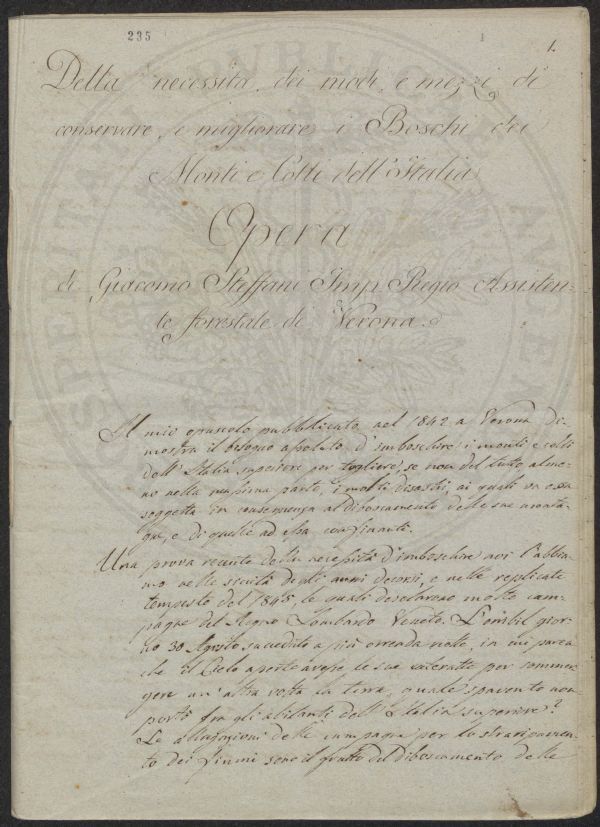 235
1.
Della necessità, dei modi, e mezzi di
conservare, e migliorare i Boschi dei
Monti e Colli dell'Italia
Opera
di Giacomo Steffani Imp. Regio Assisten-
te forestale di Verona.
Il mio opuscolo pubblicato nel 1842 a Verona di-
mostra il bisogno assoluto d'imboschire i monti e colli
dell'Italia superiore per togliere, se non del tutto, alme-
no nella massima parte, i molti disastri, ai quali va essa
soggetta in conseguenza al diboscamento delle sue monta-
gne, e di quelle ad essa confinanti.
Una prova recente della necessità d'imboschire noi l'abbia-
mo nelle siccità degli anni decorsi, e nelle replicate
tempeste del 1845, le quali desolarono molte cam-
pagne del Regno Lombardo Veneto. L'orribil gior-
no 30 Agosto succeduto a più orrenda notte, in cui parea
che il Cielo aperte avesse le sue cateratte per sommer-
gere un'altra volta la terra, quale spavento non
portò fra gli abitanti dell'Italia superiore?
Le allagazioni delle campagne per lo straripamen-
to dei fiumi sono il frutto del diboscamento delle